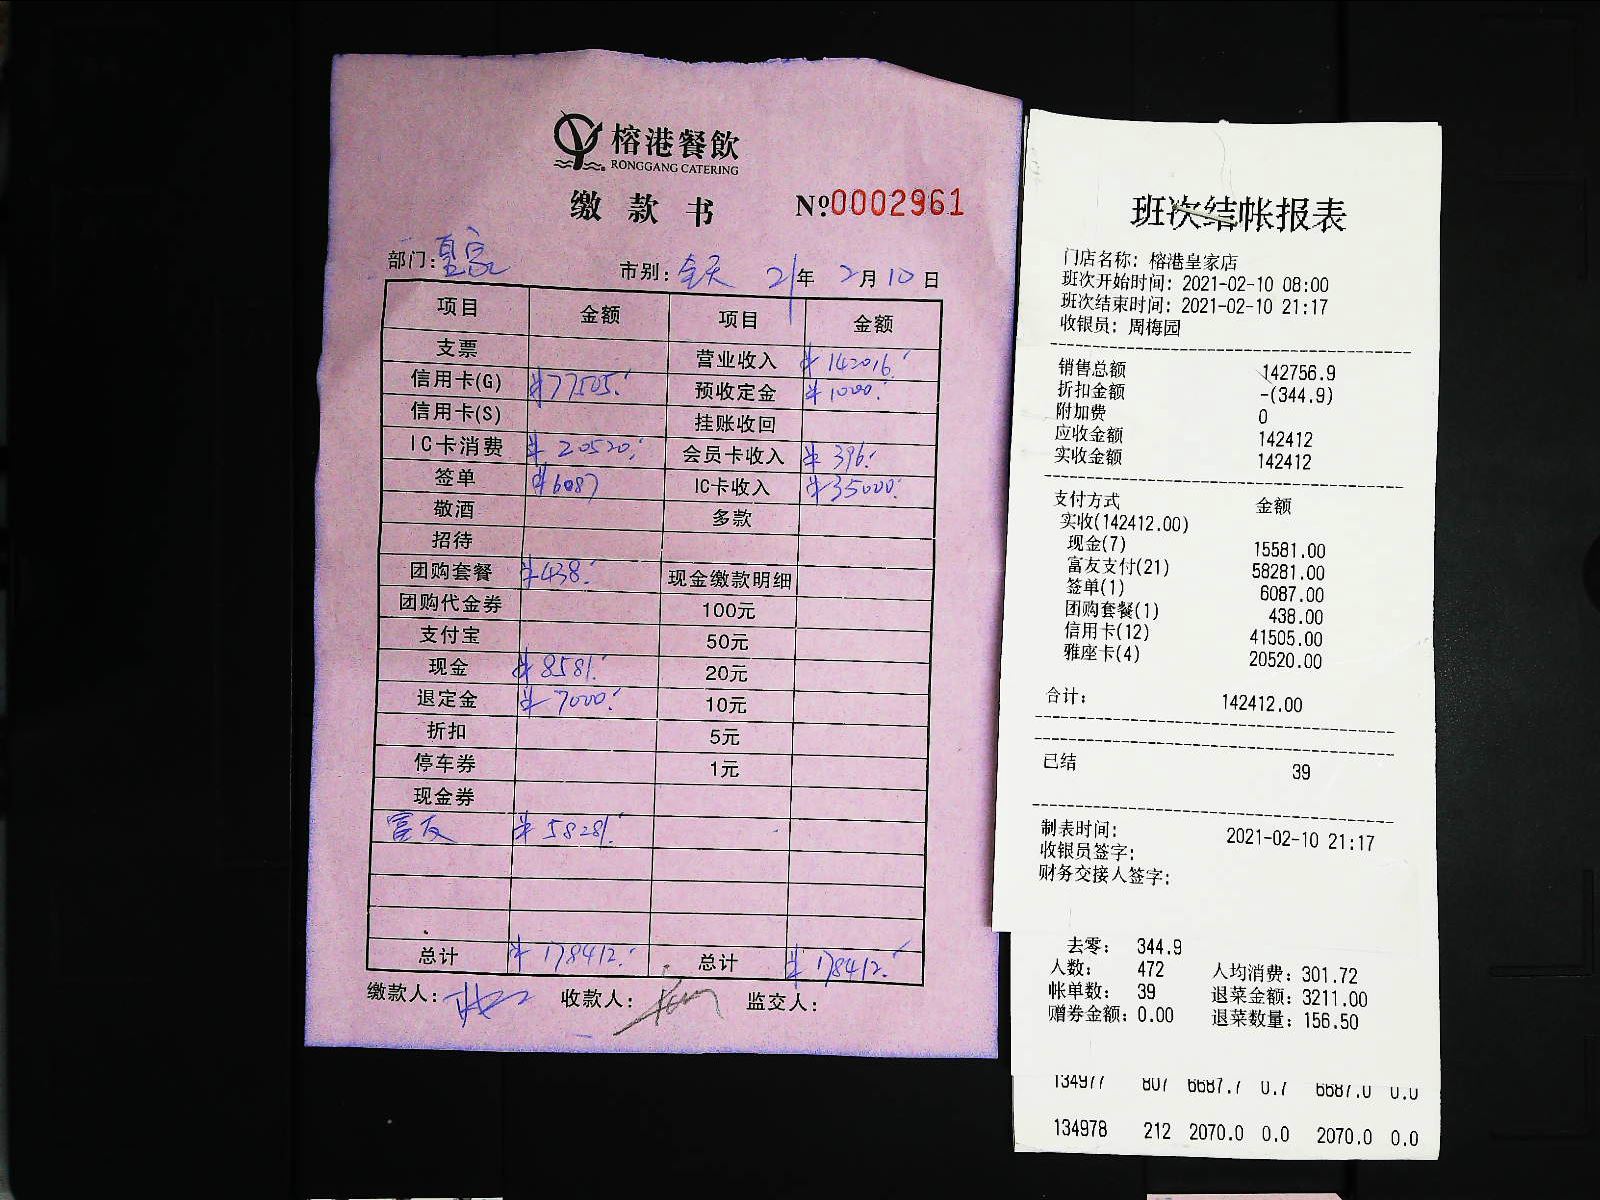 榕港餐飲
RONGGANG CATERING
缴款书 №0002961
部门:皇家 市别:全天 21年2月10日
项目 金额 项目 金额
支票 营业收入 ¥142016.
信用卡(G) ¥77505. 预收定金 ¥1000.
信用卡(S) 挂账收回
IC卡消费 ¥20520. 会员卡收入 ¥396.
签单 ¥6087 IC卡收入 ¥35000.
敬酒 多款
招待
团购套餐 ¥438. 现金缴款明细
团购代金券 100元
支付宝 50元
现金 ¥8581. 20元
退定金 ¥7000. 10元
折扣 5元
停车券 1元
现金券
富友 ¥58281.
总计 ¥178412. 总计 ¥178412.
缴款人: 收款人: 监交人:
班次结帐报表
门店名称: 榕港皇家店
班次开始时间: 2021-02-10 08:00
班次结束时间: 2021-02-10 21:17
收银员: 周梅园
销售总额 142756.9
折扣金额 -(344.9)
附加费 0
应收金额 142412
实收金额 142412
支付方式 金额
实收(142412.00)
现金(7) 15581.00
富友支付(21) 58281.00
签单(1) 6087.00
团购套餐(1) 438.00
信用卡(12) 41505.00
雅座卡(4) 20520.00
合计: 142412.00
已结 39
制表时间: 2021-02-10 21:17
收银员签字:
财务交接人签字:
去零: 344.9
人数: 472 人均消费: 301.72
帐单数: 39 退菜金额: 3211.00
赠券金额: 0.00 退菜数量: 156.50
134977 807 6687.7 0.7 6687.0 0.0
134978 212 2070.0 0.0 2070.0 0.0